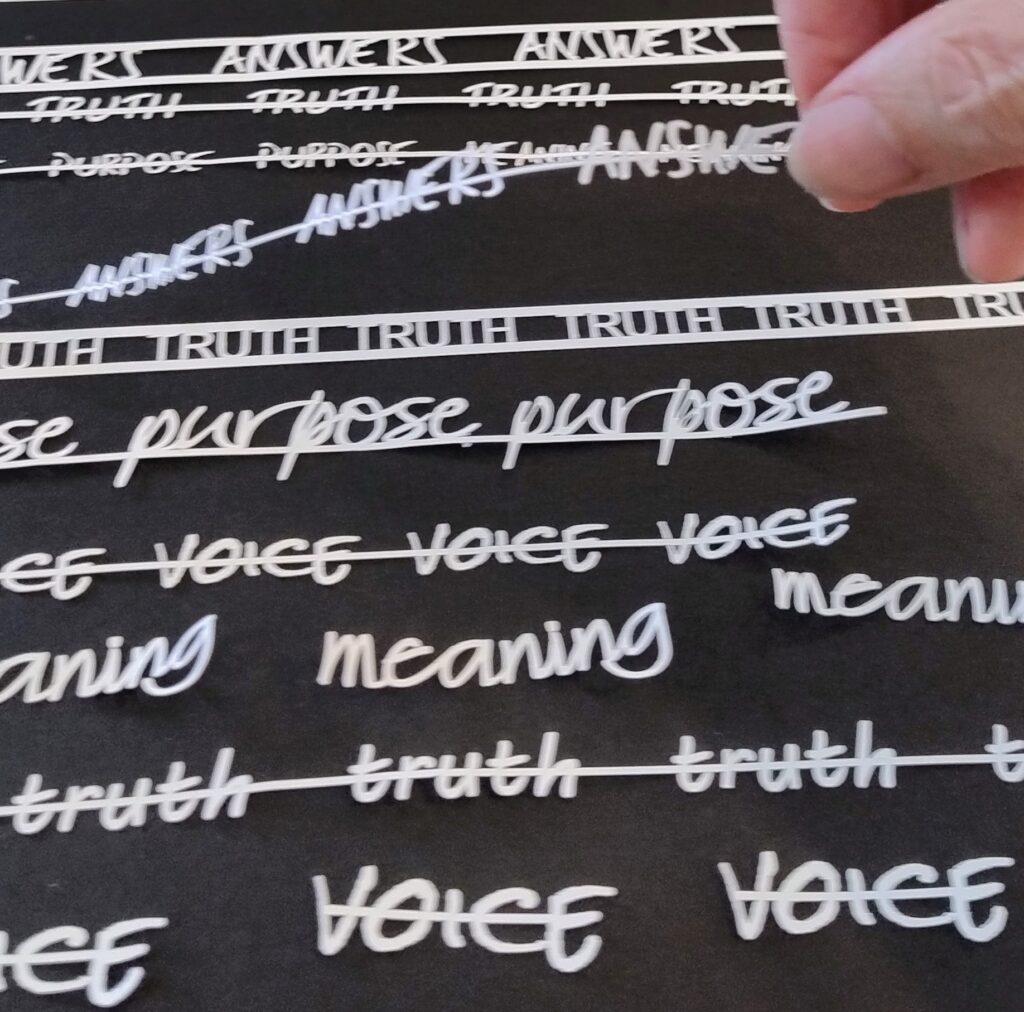 WERS ANSWERS ANSWERS
TRUTH TRUTH TRUTH TRUT
PURPOSE PURPOSE
S ANSWERS ANSWERS ANSWE
UTH TRUTH TRUTH TRUTH TRUTH TRU
se purpose purpose
CE VOICE VOICE VOICE
meanin
aning meaning
truth truth truth t
ICE VOICE VOICE